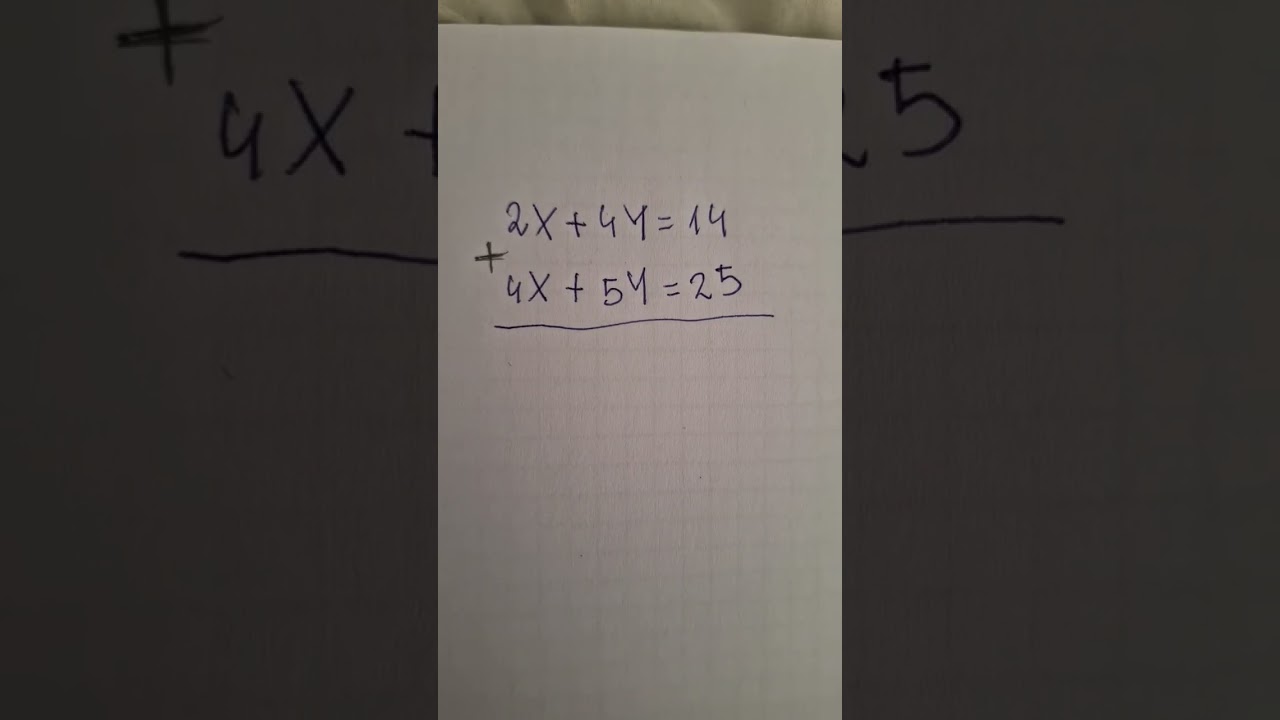 2X + 4Y = 14
+
4X + 5Y = 25